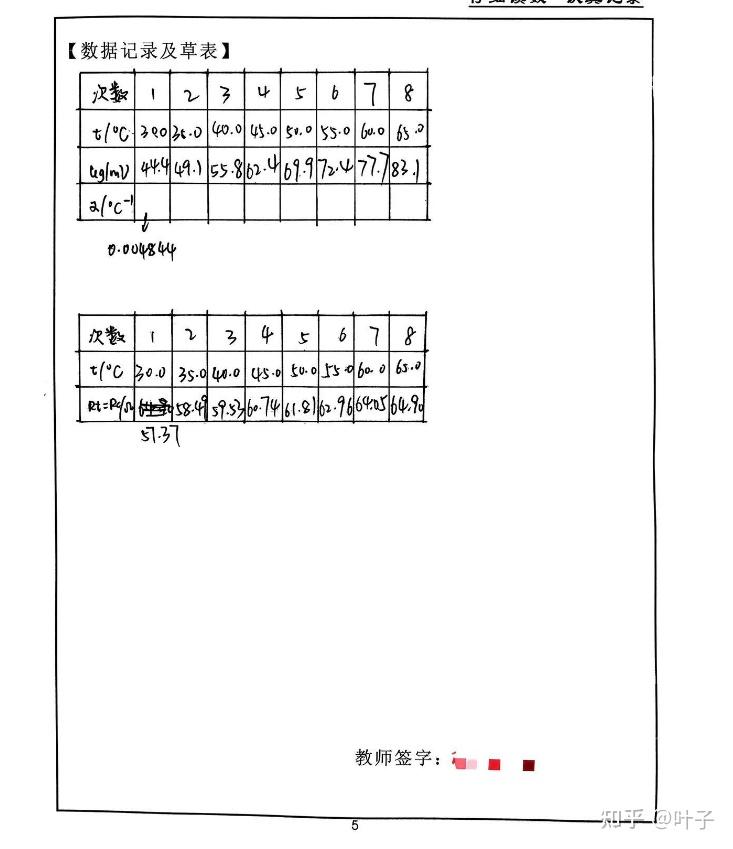 【数据记录及草表】
次数 1 2 3 4 5 6 7 8
t/°C 30.0 35.0 40.0 45.0 50.0 55.0 60.0 65.0
Ug/mV 44.4 49.1 55.8 62.4 69.9 72.4 77.7 83.1
α/°C⁻¹
0.004844
次数 1 2 3 4 5 6 7 8
t/°C 30.0 35.0 40.0 45.0 50.0 55.0 60.0 65.0
Rt=Rc/Ω 58.49 59.53 60.74 61.81 62.96 64.05 64.90
57.37
教师签字：
5
知乎 @叶子